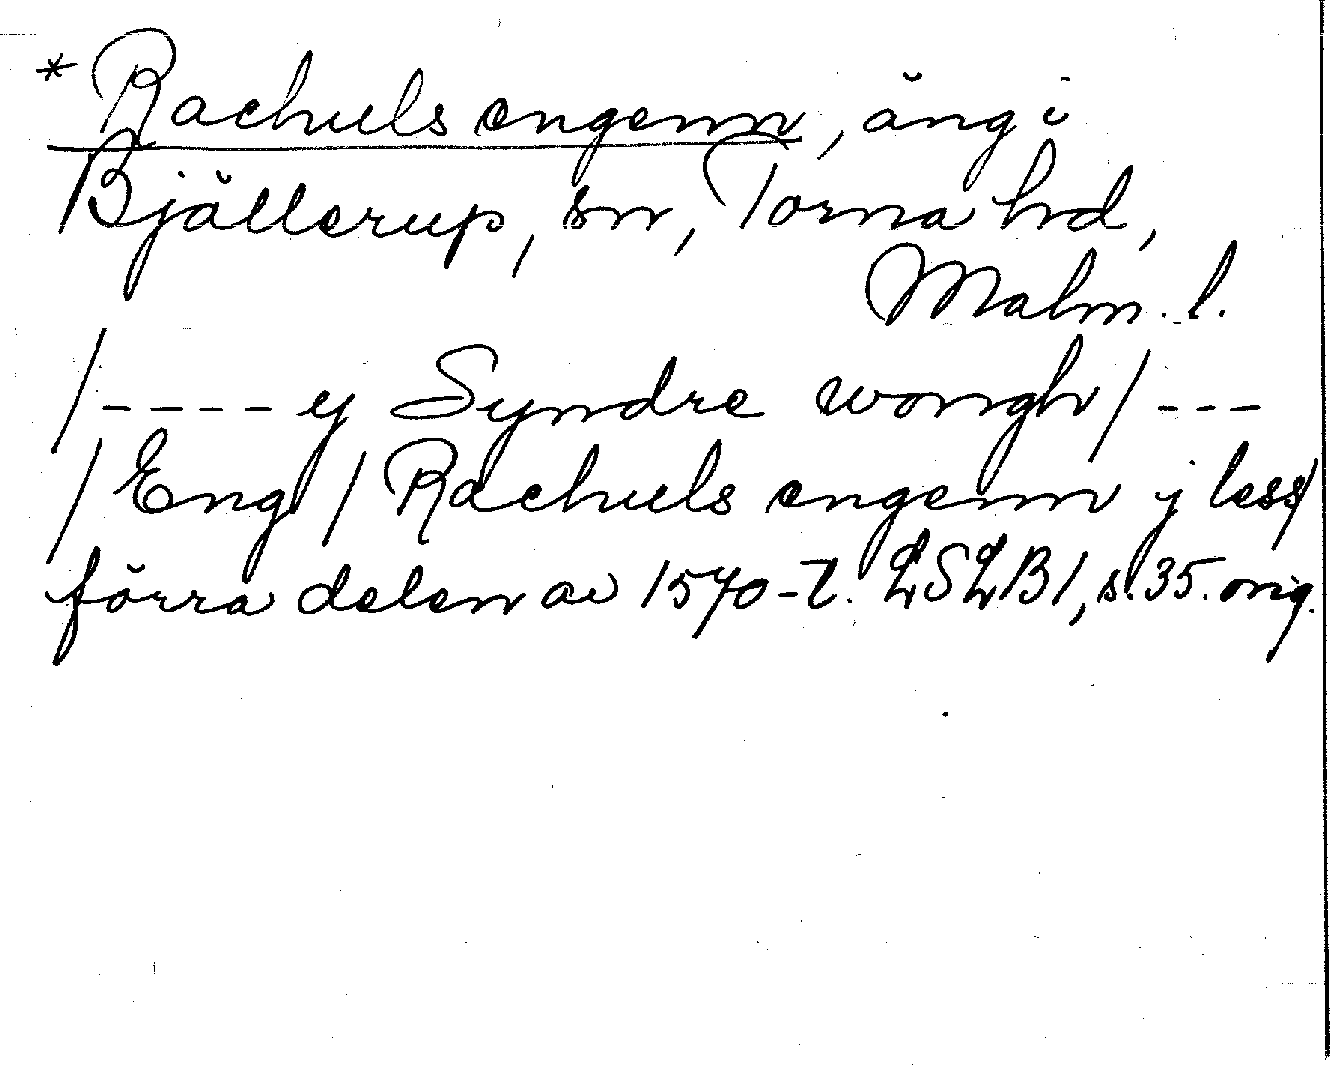 * Rachuels engenn, äng i
Bjällerup, sn, Torna hd,
Malm. l.
/---- y Syndre wongh/---
/Eng/ Rachuels engenn j less/
förra delen av 1570-t. LSLB1, s. 35. orig.